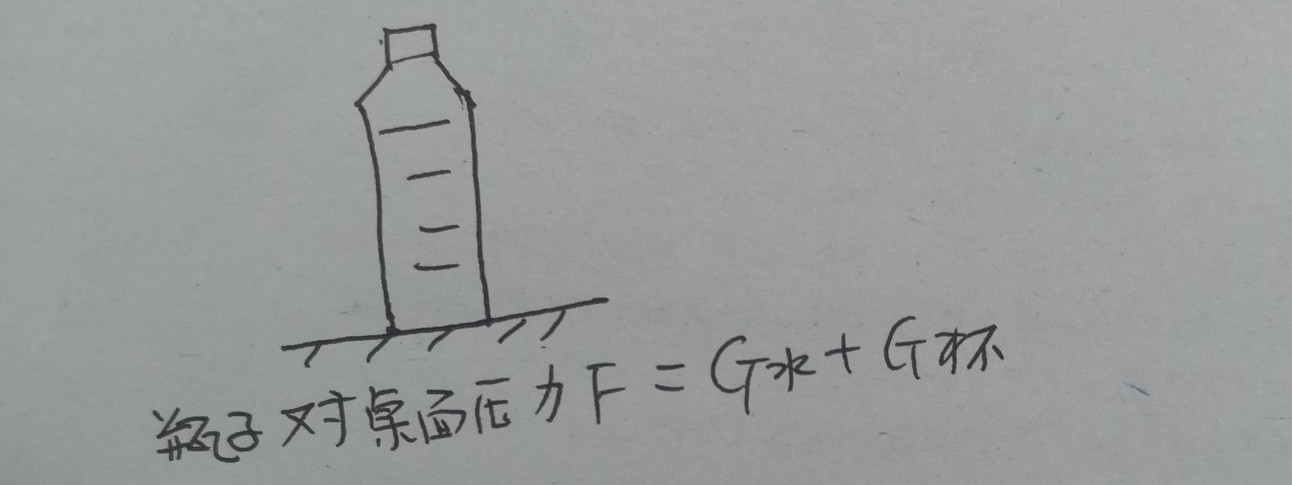 瓶子对桌面压力F=G水+G杯